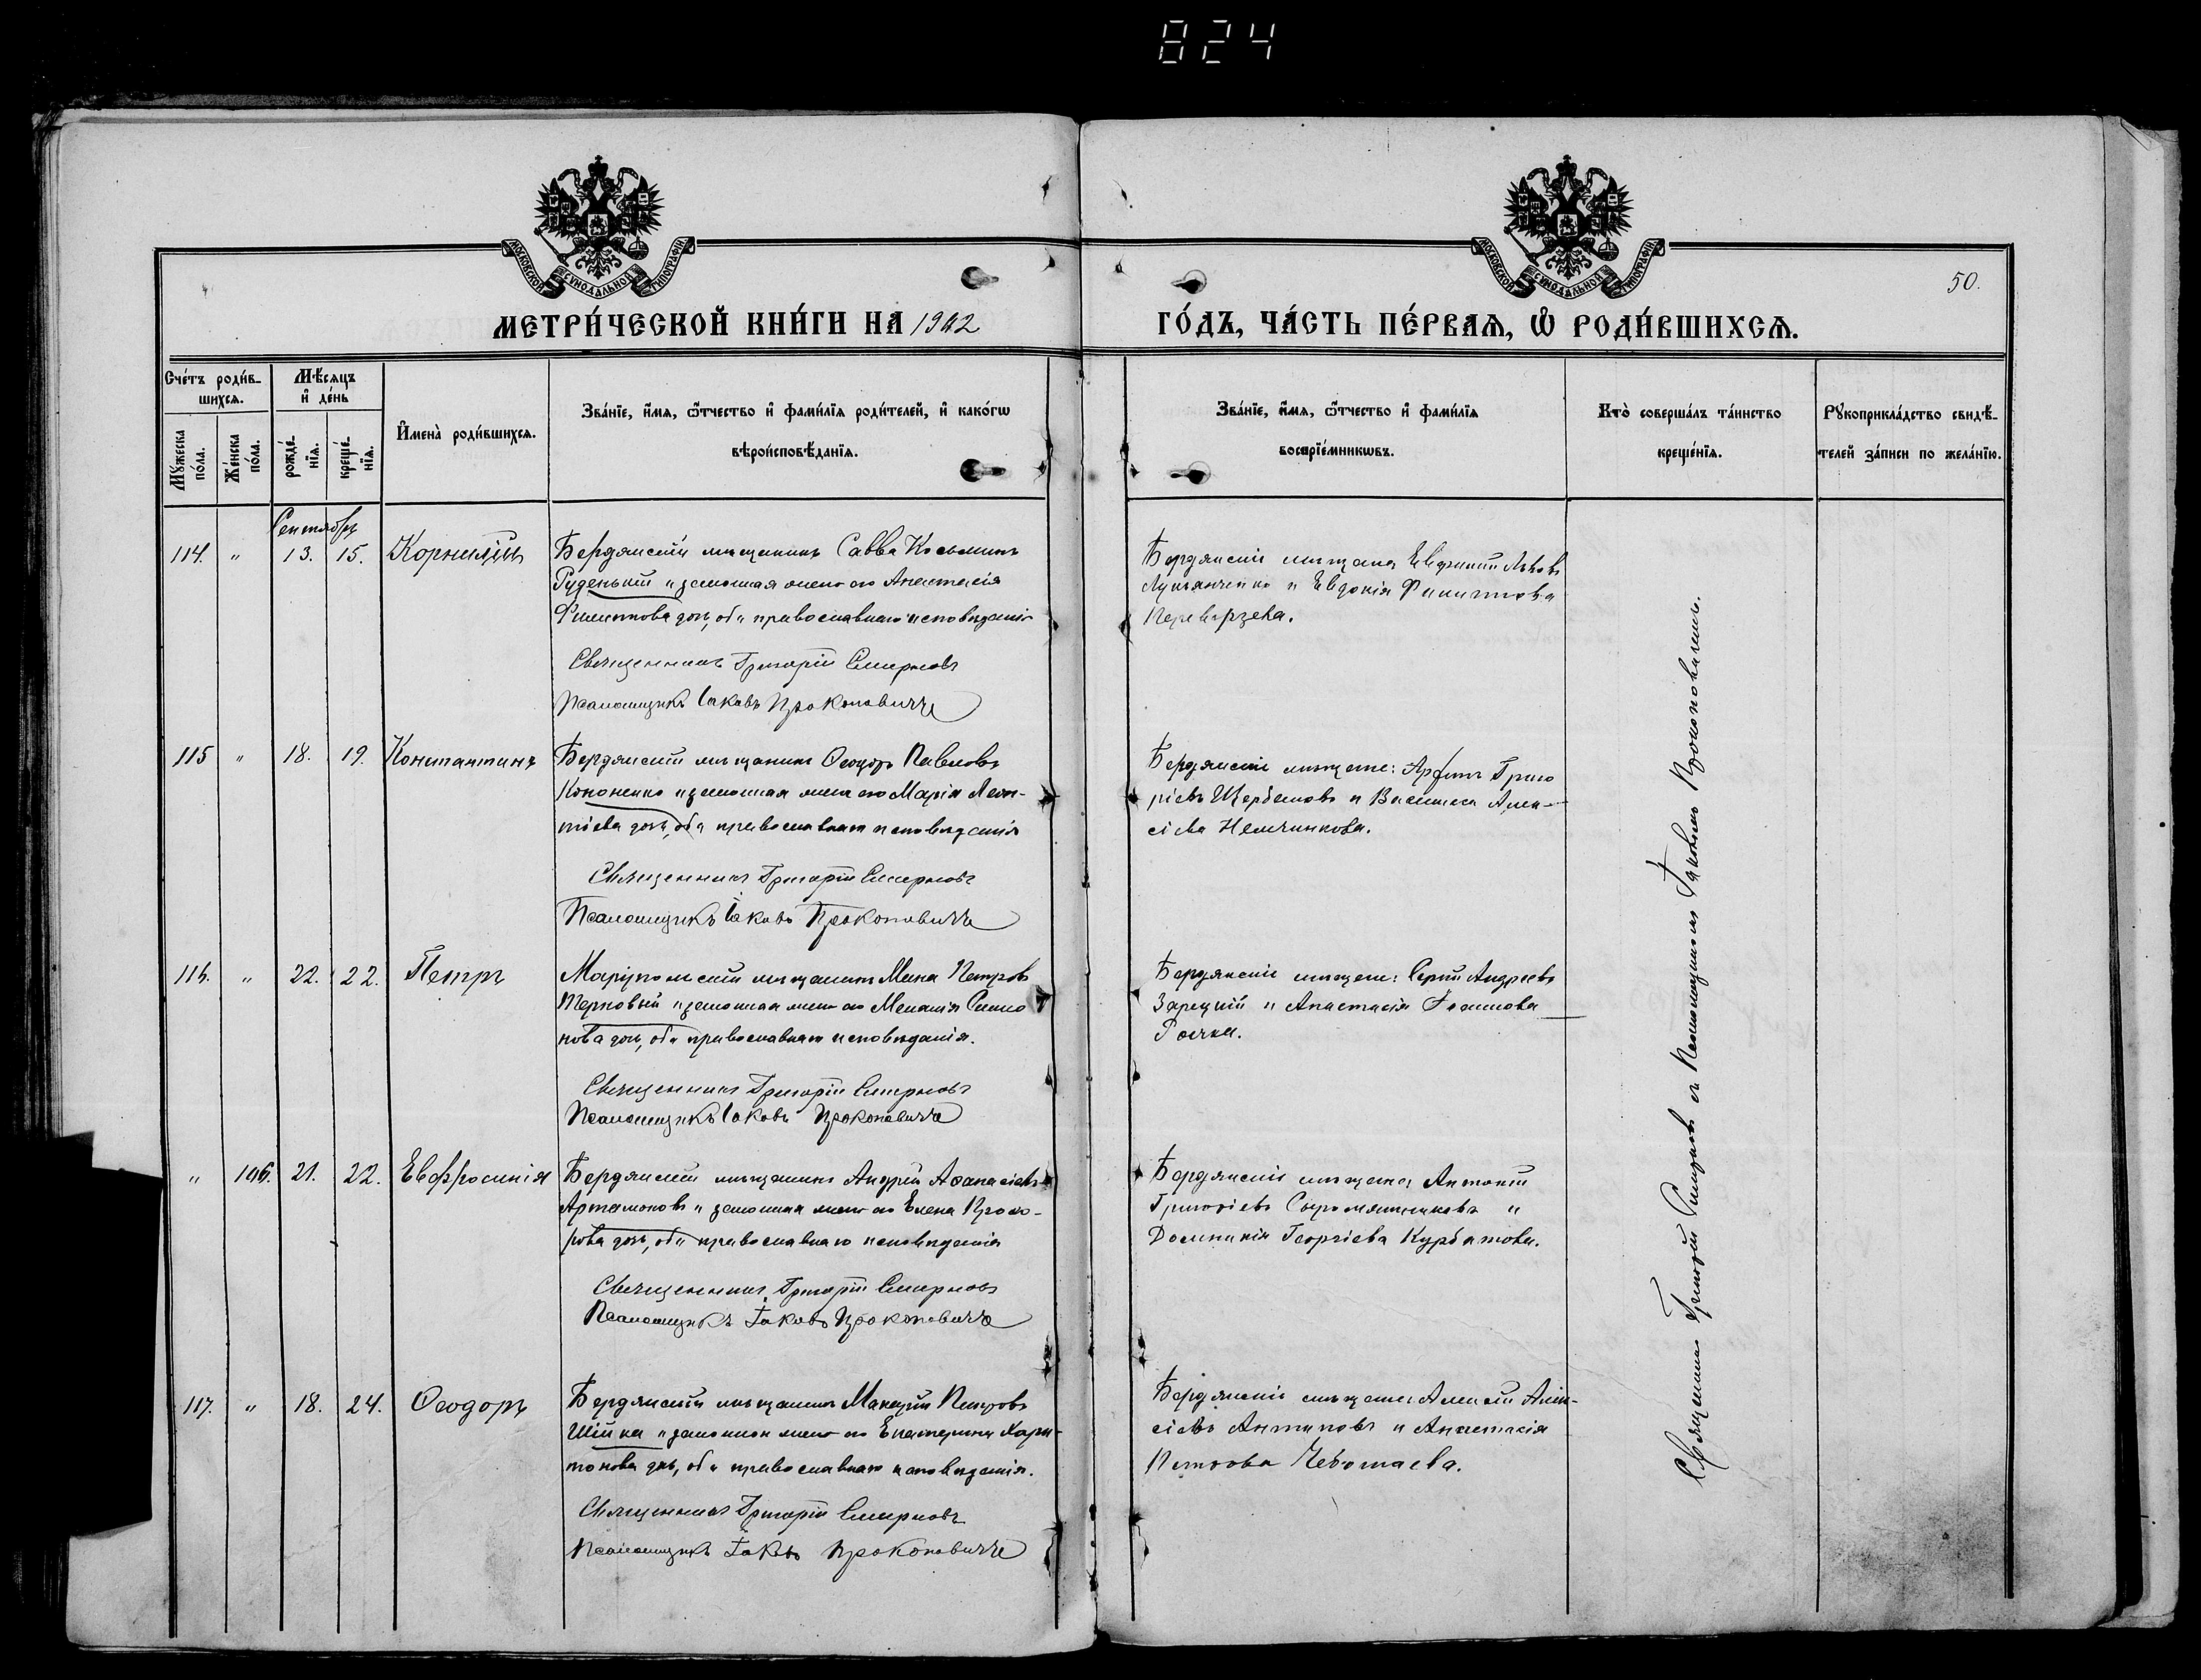 824
МОСКОВСКОЙ СѴНОДАЛЬНОЙ ТИПОГРАФІИ
МОСКОВСКОЙ СѴНОДАЛЬНОЙ ТИПОГРАФІИ
50.
МЕТРИ́ЧЕСКОЙ КНИ́ГИ НА 1902
ГО́ДЪ, ЧА́СТЬ ПЕ́РВАѦ, Ѽ РОДИ́ВШИХСѦ.
Сче́тъ роди́в-
шихсѧ.
Мѣ́сѧцъ
и҆ де́нь
Мꙋ́жеска
по́ла.
Же́нска
по́ла.
рожде́-
нїѧ.
креще́-
нїѧ.
И҆мена̀ роди́вшихсѧ.
Зва́нїе, и҆́мѧ, ѻ҆́тчество и҆ фами́лїѧ роди́телей, и҆ како́гѡ
вѣроисповѣ́данїѧ.
Зва́нїе, и҆́мѧ, ѻ҆́тчество и҆ фами́лїѧ
воспрїе́мникѡвъ.
Кто̀ соверша́лъ та́инство
креще́нїѧ.
Рꙋкоприкла́дство свидѣ́-
телей за́писи по жела́нїю.
Сентябрь
114. " 13. 15. Корнилій
Бердянскій мѣщанинъ Савва Косьминъ
Руденькій и законная жена его Анастасія
Филиппова дочь, оба православнаго исповѣданія
Священникъ Григорій Смирновъ
Псаломщикъ Іаковъ Прокоповичъ
Бердянскіе мѣщане Евфимій Львовъ
Лукьянченко и Евдокія Филиппова
Переверзева.
115 " 18. 19. Константинъ
Бердянскій мѣщанинъ Ѳеодоръ Павловъ
Кононенко и законная жена его Марія Леон-
тіева дочь, оба православнаго исповѣданія
Священникъ Григорій Смирновъ
Псаломщикъ Іаковъ Прокоповичъ
Бердянскіе мѣщане: Григо
ріевъ Щербаковъ и Василиса Алек-
сіева Немчинкова.
116. " 22. 22. Петръ
Маріупольскій мѣщанинъ Мина Петровъ
Терновый и законная жена его Меланія Симо
нова дочь, оба православнаго исповѣданія.
Священникъ Григорій Смирновъ
Псаломщикъ Іаковъ Прокоповичъ
Бердянскіе мѣщане: Сергій Андреевъ
Зарецкій и Анастасія Іоакимова
" 106. 21. 22. Евфросинія
Бердянскій мѣщанинъ Андрей Аѳанасіевъ
Артамоновъ и законная жена его Елена Прохо-
рова дочь, оба православнаго исповѣданія
Священникъ Григорій Смирновъ
Псаломщикъ Іаковъ Прокоповичъ
Бердянскіе мѣщане: Антоній
Григоріевъ Сыромятниковъ и
Домникія Георгіева Курбатова.
117. " 18. 24. Ѳеодоръ
Бердянскій мѣщанинъ Макарій Петровъ
Шійка и законная жена его Екатерина Хари-
тонова дочь, оба православнаго исповѣданія.
Священникъ Григорій Смирновъ
Псаломщикъ Іаковъ Прокоповичъ
Бердянскіе мѣщане: Алексій Алек-
сіевъ Антиповъ и Анастасія
Петрова Чеботаева.
Священникъ Григорій Смирновъ съ Псаломщикомъ Іаковомъ Прокоповичемъ.